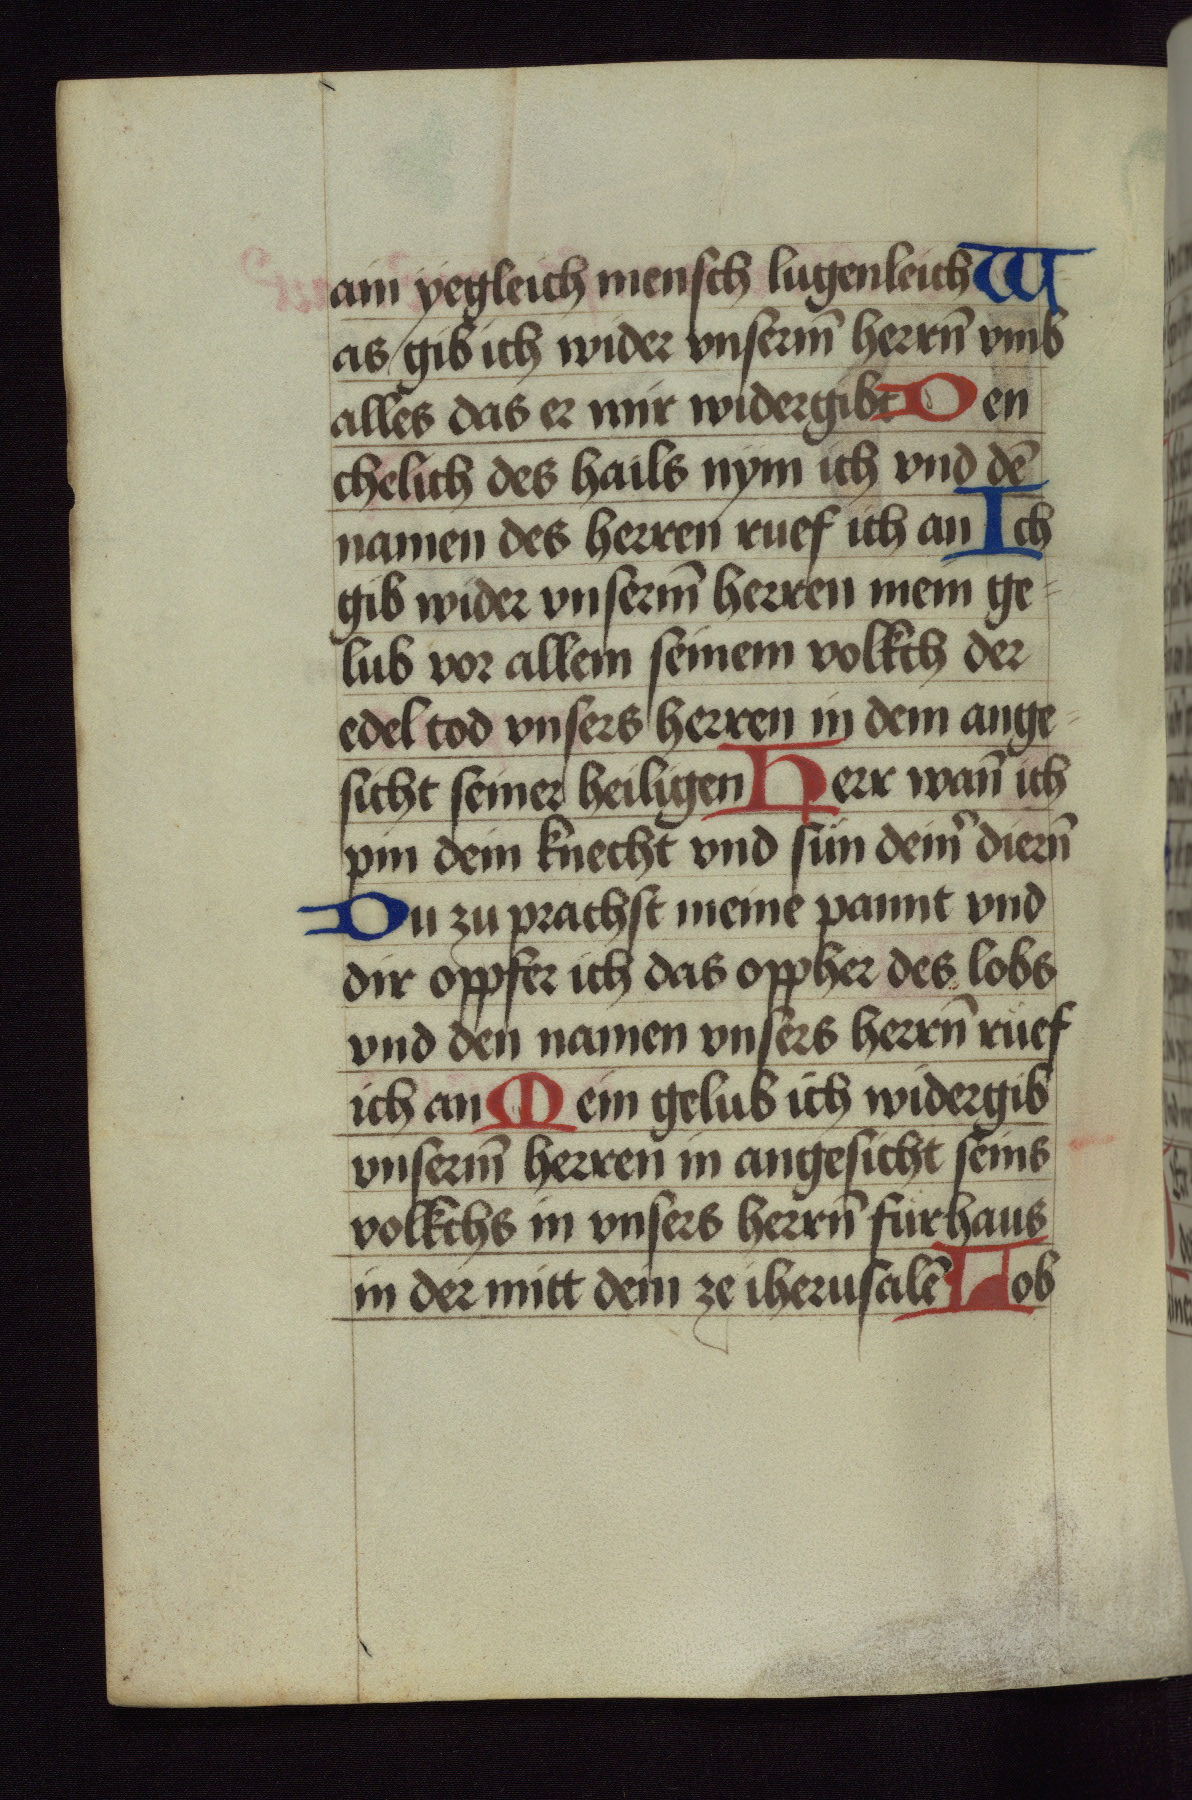 ain yegleich mensch lugenleich W
as gib ich wider vnserm̄ herrn̄ vmb
alles das er mir widergibt Den
chelich des hails nym ich vnd dē
namen des herren ruef ich an Ich
gib wider vnserm̄ herren mein ge=
lub vor allem seinem volkch der
edel tod vnsers herren in dem ange-
sicht seiner heiligen Herr wan̄ ich
pin dein knecht vnd sun deinr̄ diern̄
Du zu prachst meine pannt vnd
dir oppfer ich das oppher des lobs
vnd den namen vnsers herrn̄ rüef
ich an Mein gelub ich widergib
vnserm̄ herren in angesicht seins
volkchs in vnsers herrn̄ fürhaus
in der mitt dein ze iherusalē Lob